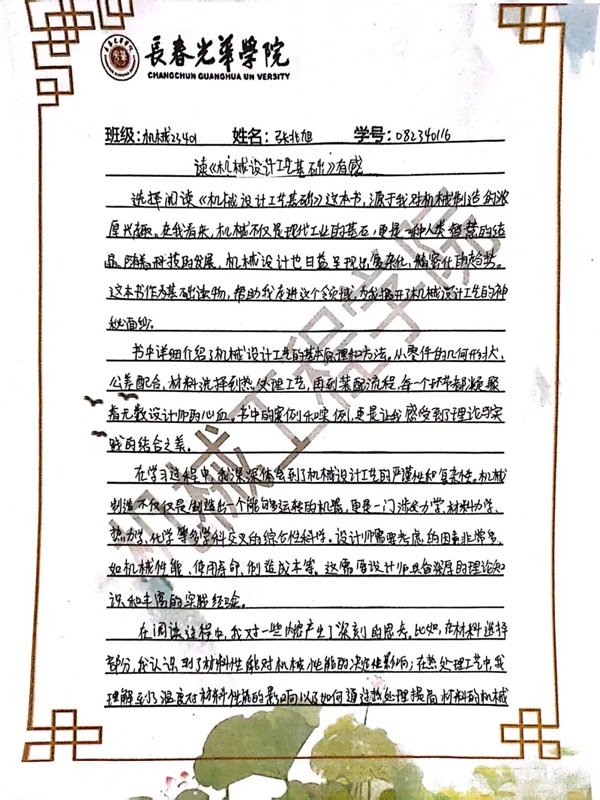 長春光華學院
CHANGCHUN GUANGHUA UN VERSITY
班级:机械23401 姓名:张兆旭 学号:082340116
读《机械设计工艺基础》有感
选择阅读《机械设计工艺基础》这本书,源于我对机械制造的浓
厚兴趣。在我看来,机械不仅是现代工业的基石,更是一种人类智慧的结
晶。随着科技的发展,机械设计也日益呈现出复杂化、精密化的趋势。
这本书作为基础读物,帮助我走进这个领域,为我揭开了机械设计工艺的神
秘面纱。
书中详细介绍了机械设计工艺的基本原理和方法。从零件的几何形状、
公差配合、材料选择到热处理工艺,再到装配流程,每一个环节都凝聚
着无数设计师的心血。书中的案例和实例,更是让我感受到了理论与实
践的结合之美。
在学习过程中,我深深体会到了机械设计工艺的严谨性和复杂性。机械
制造不仅仅是制造出一个能够运转的机器,更是一门涉及力学、材料力学、
热力学、化学等多学科交叉的综合性科学。设计师需要考虑的因素非常多,
如机械性能、使用寿命、制造成本等。这需要设计师具备深厚的理论知
识和丰富的实践经验。
在阅读过程中,我对一些内容产生了深刻的思考。比如,在材料选择
部分,我认识到了材料性能对机械性能的决定性影响;在热处理工艺中,我
理解到了温度对材料性能的影响以及如何通过热处理提高材料的机械
机械工程学院